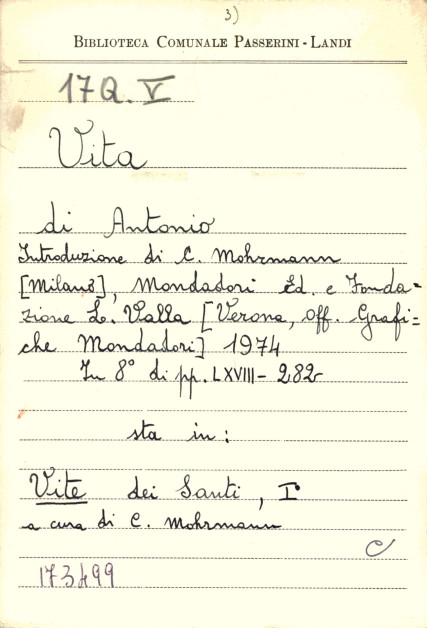 3)
BIBLIOTECA COMUNALE PASSERINI - LANDI
17Q. V
Vita
di Antonio
Introduzione di C. Mohrmann
[Milano], Mondadori Ed. e Fonda=
zione L. Valla [Verona, Off. Grafi=
che Mondadori] 1974
In 8° di pp. LXVIII - 282
sta in:
Vite dei Santi, I
a cura di C. Mohrmann
C
173499